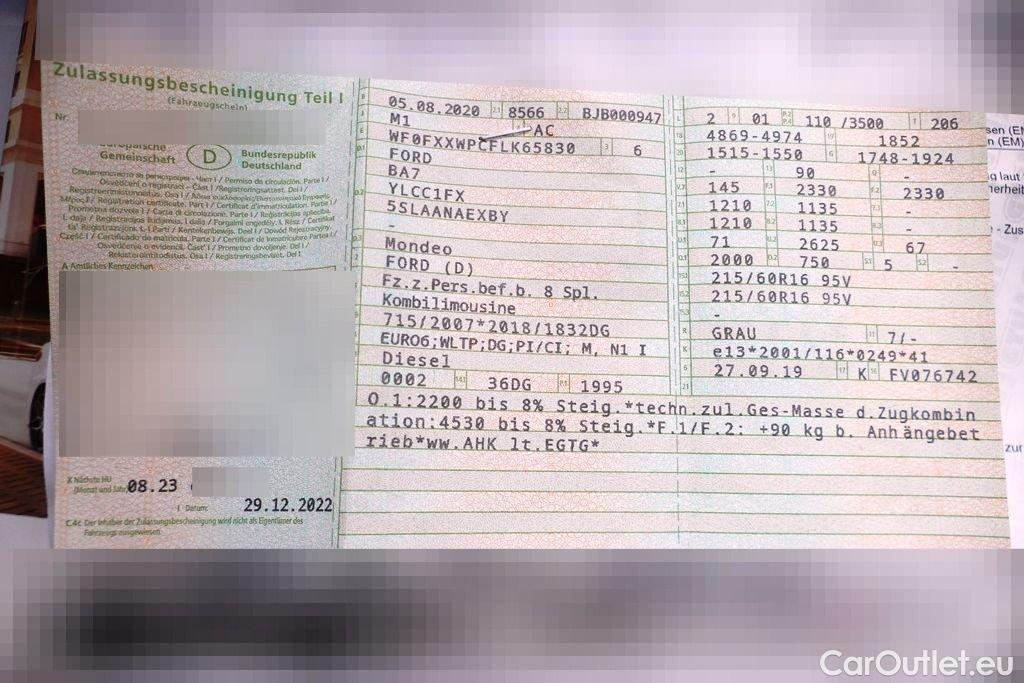 Zulassungsbescheinigung Teil I
(Fahrzeugschein)
Nr.
Europäische Gemeinschaft
D
Bundesrepublik Deutschland
A Amtliches Kennzeichen
X Nächste HU (Monat und Jahr) 08.23
I Datum: 29.12.2022
C.4c Der Inhaber der Zulassungsbescheinigung wird nicht als Eigentümer des Fahrzeugs ausgewiesen.
05.08.2020 2.1 8566 2.2 BJB000947
M1 AC
WF0FXXWPCFLK65830 3 6
FORD
BA7
YLCC1FX
5SLAANAEXBY
-
Mondeo
FORD (D)
Fz.z.Pers.bef.b. 8 Spl.
Kombilimousine
715/2007*2018/1832DG
EURO6;WLTP;DG;PI/CI; M, N1 I
Diesel
0002 36DG P.1 1995
L 2 9 01 P.2 P.4 110 /3500 T 206
18 4869-4974 19 1852
20 1515-1550 G 1748-1924
12 - 13 90 Q -
V.7 145 F.1 2330 F.2 2330
7.1 1210 7.2 1135 7.3 -
8.1 1210 8.2 1135 8.3 -
U.1 71 U.2 2625 U.3 67
O.1 2000 O.2 750 S.1 5 S.2 -
15.1 215/60R16 95V
15.2 215/60R16 95V
15.3 -
R GRAU 11 7/-
K e13*2001/116*0249*41
6 27.09.19 17 K 16 FV076742
21
O.1:2200 bis 8% Steig.*techn.zul.Ges-Masse d.Zugkombin
ation:4530 bis 8% Steig.*F.1/F.2: +90 kg b. Anhängebet
rieb*ww.AHK lt.EGTG*
CarOutlet.eu